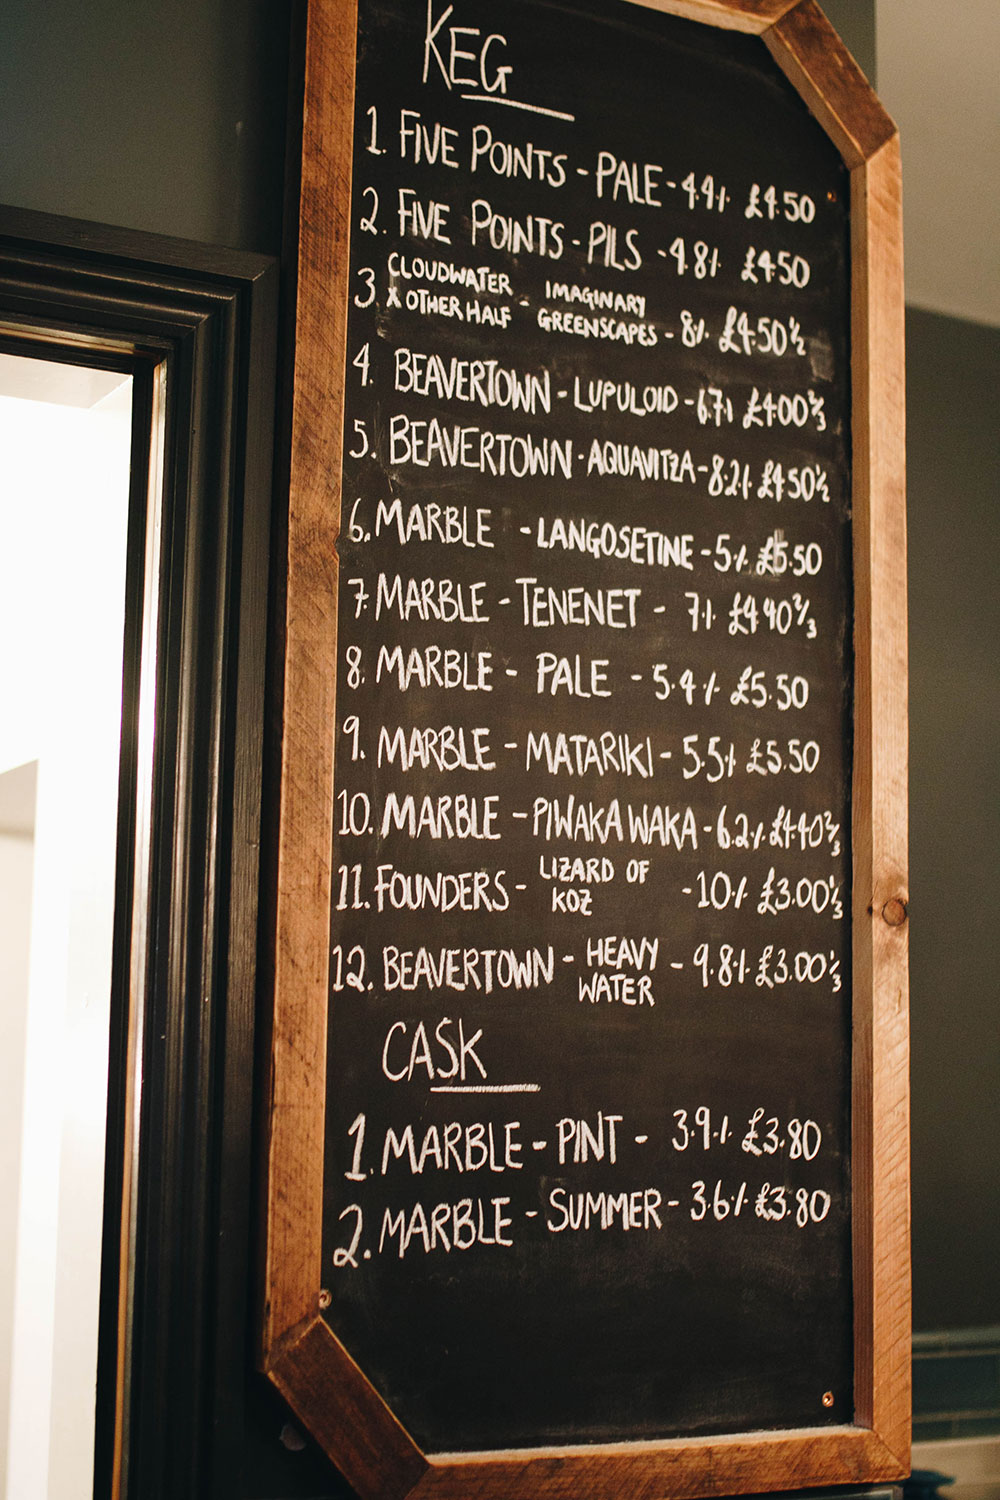 KEG
1. FIVE POINTS - PALE - 4.4% £4.50
2. FIVE POINTS - PILS - 4.8% £4.50
3 CLOUDWATER X OTHER HALF - IMAGINARY GREENSCAPES - 8% £4.50 ½
4. BEAVERTOWN - LUPULOID - 6.7% £4.00 ⅔
5. BEAVERTOWN - AQUAVITZA - 8.2% £4.50 ½
6. MARBLE - LANGOSETINE - 5% £5.50
7. MARBLE - TENENET - 7% £4.40 ⅔
8. MARBLE - PALE - 5.4% £5.50
9. MARBLE - MATARIKI - 5.5% £5.50
10. MARBLE - PIWAKA WAKA - 6.2% £4.40 ⅔
11. FOUNDERS - LIZARD OF KOZ - 10% £3.00 ⅓
12. BEAVERTOWN - HEAVY WATER - 9.8% £3.00 ⅓
CASK
1. MARBLE - PINT - 3.9% £3.80
2. MARBLE - SUMMER - 3.6% £3.80